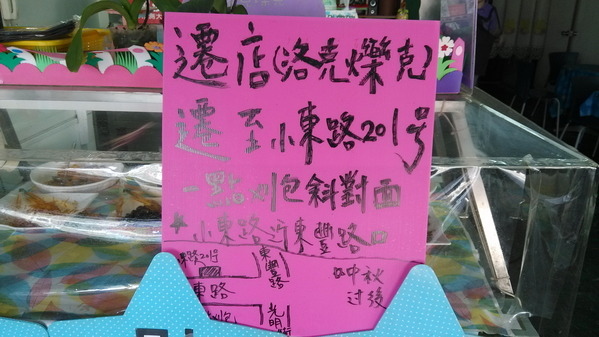 遷店(洛克爍克)
遷至小東路201号
一點刈包斜對面
小東路近東豐路口
路201号
東豐路
中秋
过後
東路
刈包
光明街